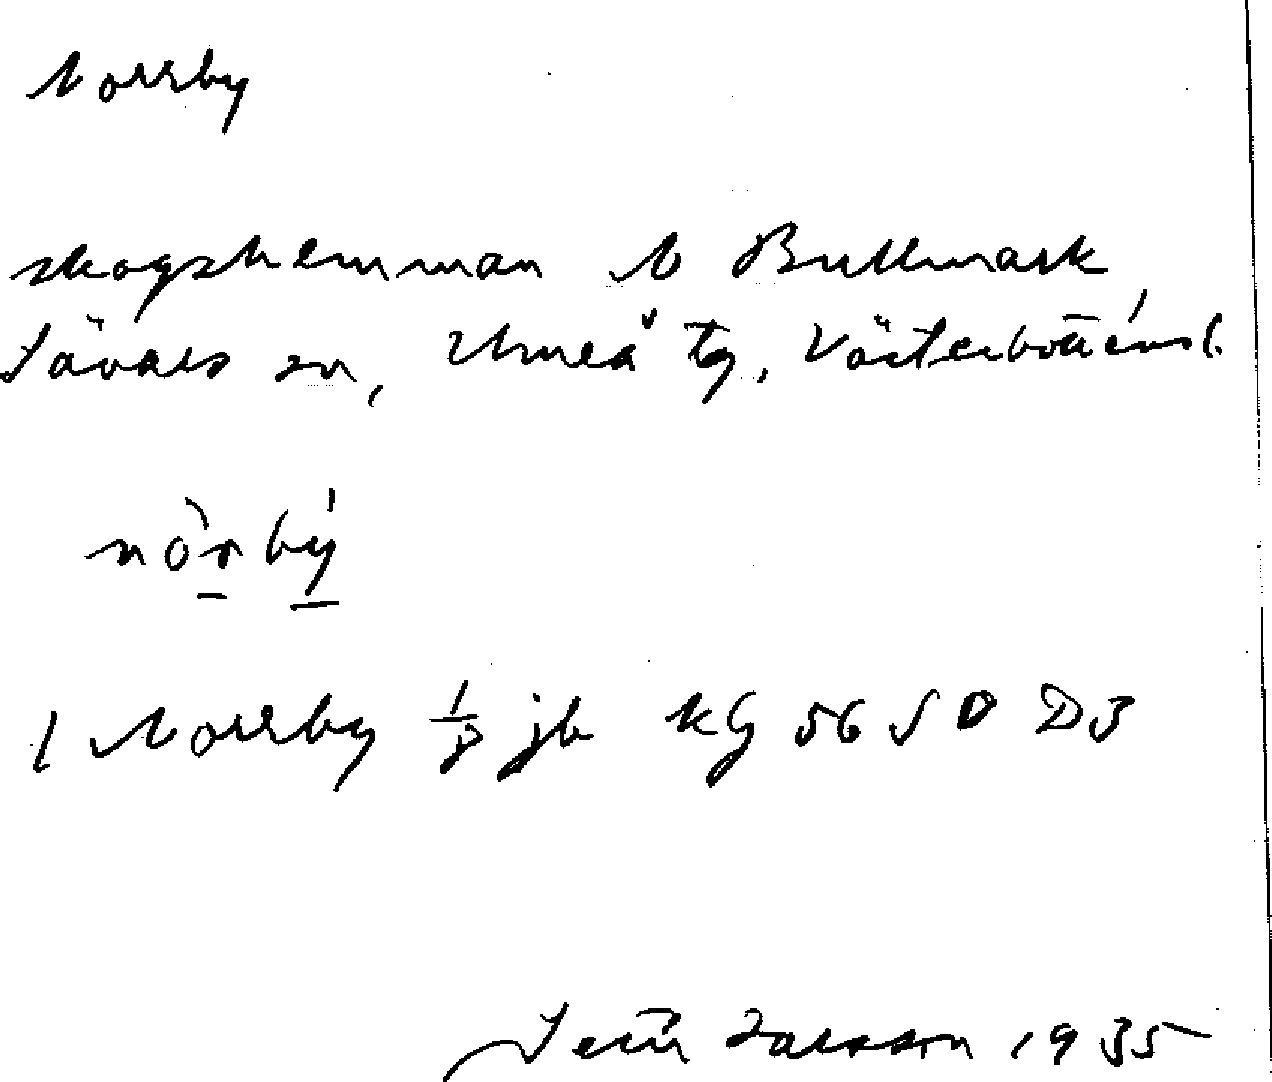 Norrby
skogshemman N Bullmark
Sävars sn, Umeå tg, Västerbottens l.
nörby
1 Norrby jb kG 56 SO D3
Larsson 1935